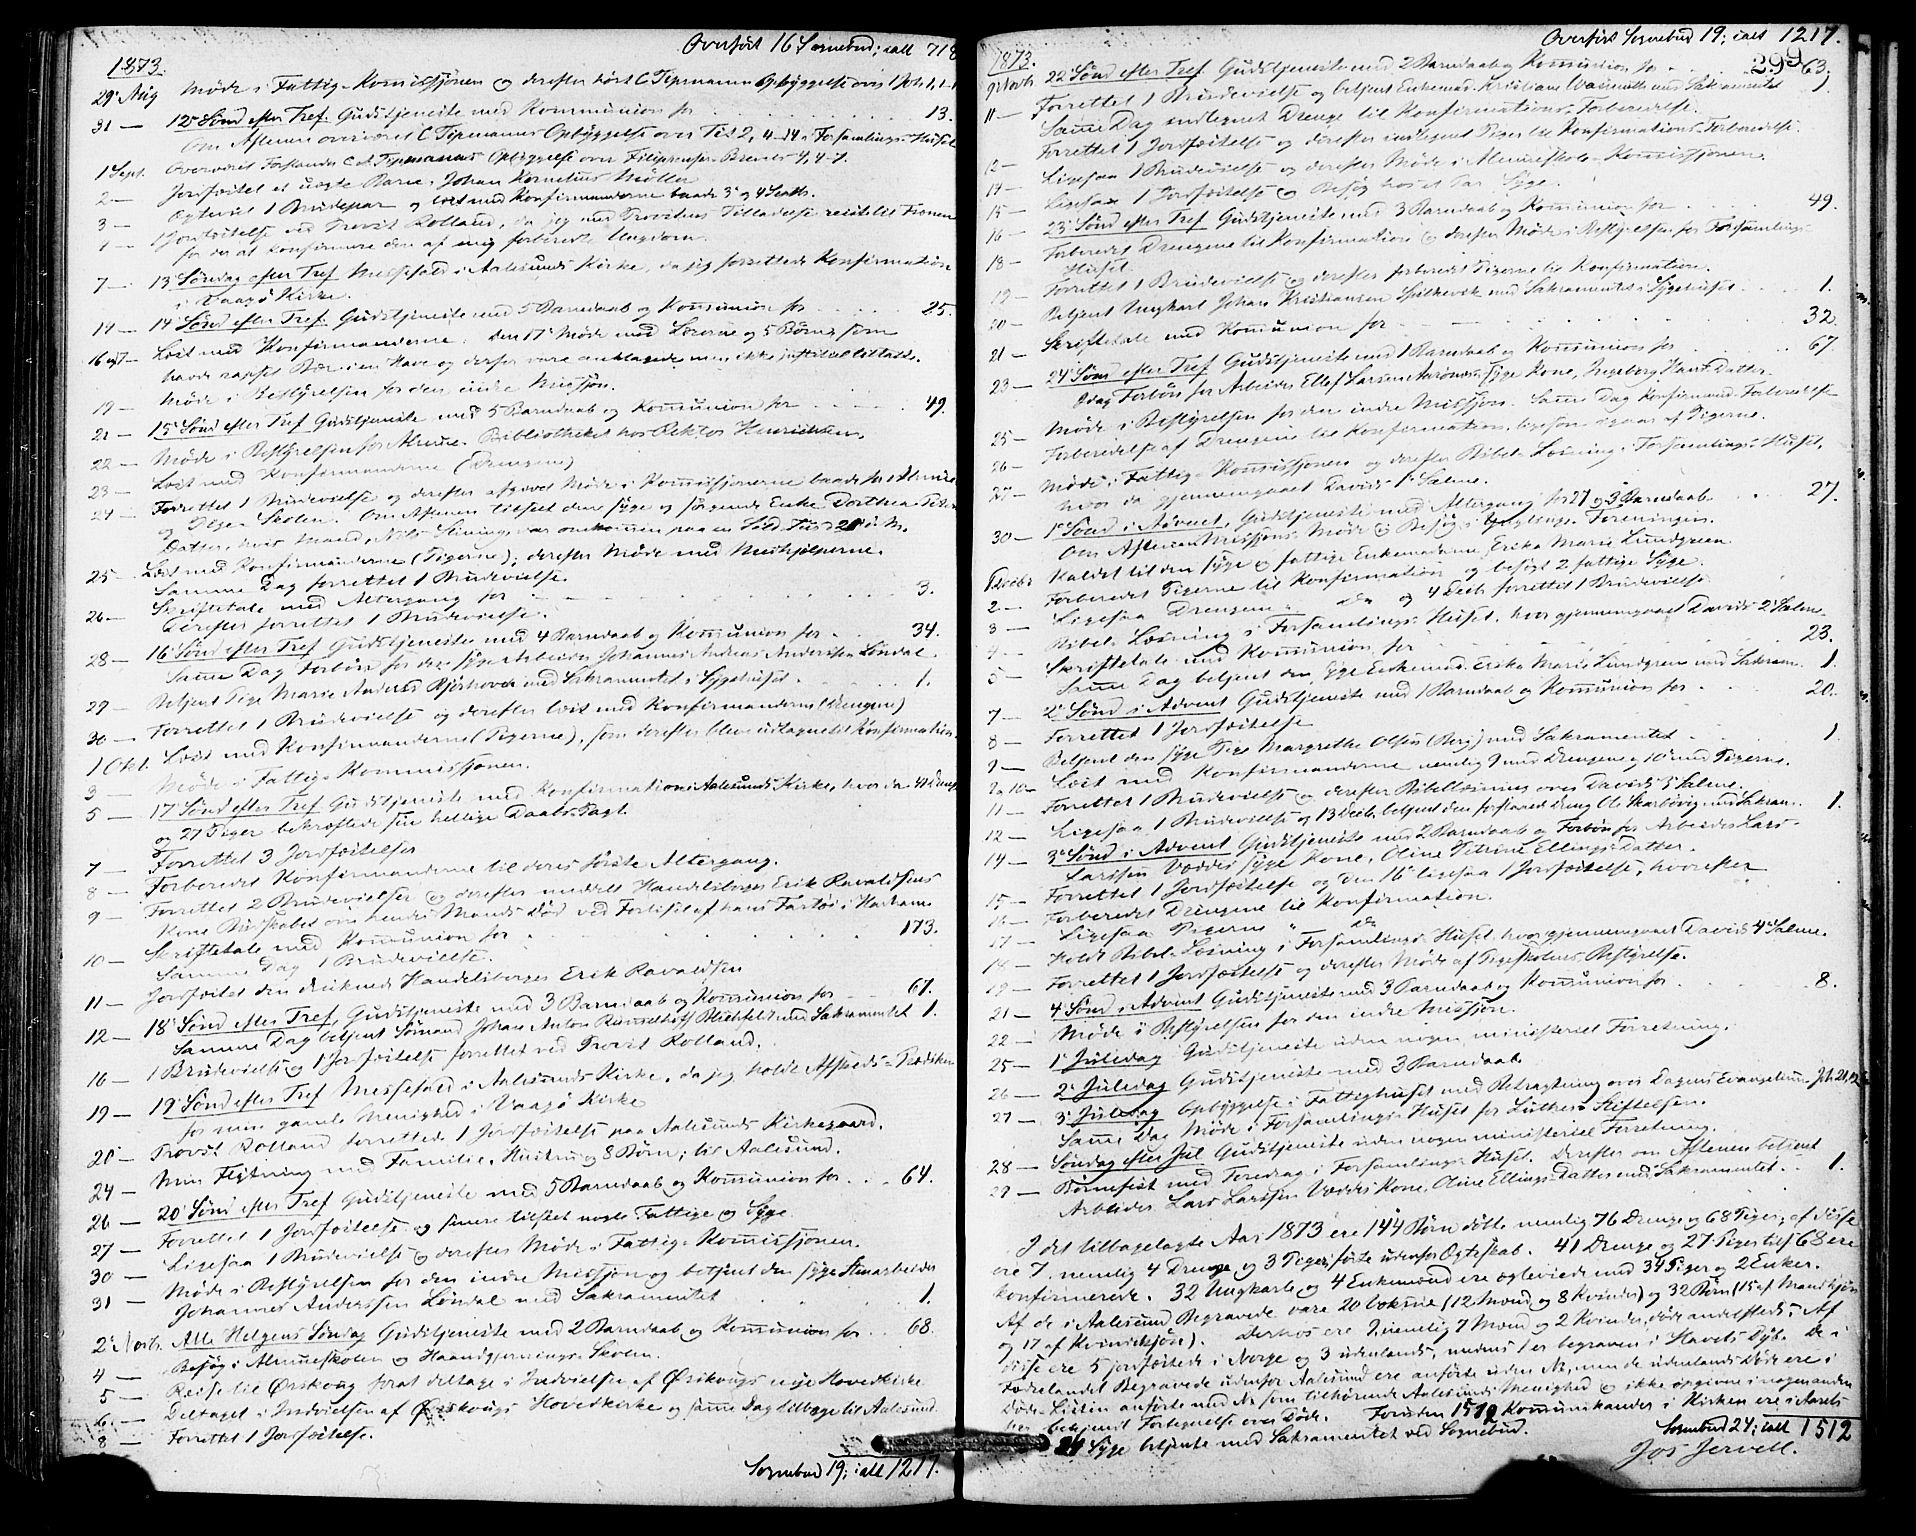 Overført 16 Sognebud; ialt 718
1873.
29 Aug Møde i Fattig-Komissjonen og derefter hørt C Tepmanns Opbyggelse over 1 Joh. 1, 1-
31 — 12 Sønd efter Tref. Gudstjeneste med Kommunion for 13.
Om Aftenen overværet C Tepmanns Opbyggelse over Tit 2, 11-14 i Forsamlings-Huset
1 Sept. Overværet Forstander C Tepmanns Opbyggelse over Filippenser Brevet 4, 4-7.
2 — Jordfæstet et uægte Barn, Johan Kornelius Møller
3 — Ægteviet 1 Brudepar og læst med Konfirmanderne baade 3 og 4 Septb.
4 — 1 Jordfæstelse ved Provst Rolland, da jeg med Provstens Tilladelse reiste til
for der at konfirmere den af mig forberedte Ungdom.
7 — 13 Søndag efter Tref Messefald i Aalesunds Kirke, da jeg forrettede Konfirmation
i Vaagø Kirke.
14 — 14 Sønd efter Tref. Gudstjeneste med 5 Barndaab og Komunion for 25.
16 Læst med Konfirmanderne. Den 17 Møde med Lærerne og 5 Børn, som
havde rappet Bær i en Have og derfor vare anklagede men ikke
19 — Møde i Bestyrelsen for den indre Missjon.
21 — 15 Sønd efter Tref Gudstjeneste med 5 Barndaab og Komunion for 49.
22 — Møde i Bestyrelsen for Almue-Bibliotheket hos Rektor Henrichsen.
23 — Læst med Konfirmanderne (Drengene)
24 — Forrettet 1 Brudevielse og derefter afgivet Møde i Komissjonerne baade for Almue
og Skolen. Om Aftenen tilseet den syge og sørgende Enke Dorthea
Datter, hvis Mand, Nils var omkommen paa en
25 — Læst med Konfirmanderne (Pigerne); derefter Møde med Medhjelperne.
Samme Dag forrettet 1 Brudevielse.
26 — Skriftetale med Altergang for 3.
Derefter forrettet 1 Brudevielse.
28 — 16 Sønd efter Tref Gudstjeneste med 4 Barndaab og Komunion for 34.
Samme Dag Forbøn for den syge Arbeider Johannes Andreas Anderssen Løndal
29 — Betjent Pige Marie Anderss Bjørhovde med Sakramentet i Sygehuset. 1.
30 — Forrettet 1 Brudevielse og derefter læst med Konfirmanderne (Drengene)
1 Okt. Læst med Konfirmanderne (Pigerne), som derefter bleve udtagne til Konfirmation.
3 — Møde i Fattig-Kommissjonen.
5 — 17 Sønd efter Tref Gudstjeneste med Konfirmation i Aalesunds Kirke, hvorda 41 Drenge
og 27 Piger bekræftede sin hellige Daabs-Pagt.
7 — Forrettet 3 Jordfæstelser
8 — Forberedet Konfirmanderne til deres første Altergang.
9 — Forrettet 2 Brudevielser og derefter meddelt Handelsborger Erik Ravaldsens
Kone Budskabet om hendes Mands Død ved Forliset af hans Fartøi i Harham
10 — Skriftetale med Komunion for 173.
Samme Dag 1 Brudevielse.
11 — Jordfæstet den druknede Handelsborger Erik Ravaldsen
12 — 18 Sønd efter Tref. Gudstjeneste med 3 Barndaab og Komunion for 61.
Samme Dag betjent Sømand Johan Anton med Sakramentet 1.
16 — 1 Brudevielse og 1 Jordfæstelse forrettet ved Provst Rolland.
19 — 19 Sønd efter Tref Messefald i Aalesunds Kirke, da jeg holdt Afskeds-Prædiken
for min gamle Menighed i Vaagø Kirke
20 — Provst Rolland forrettede 1 Jordfæstelse paa Aalesunds Kirkegaard.
24 — Min Flytning med Familie, Hustru og 8 Børn; til Aalesund.
26 — 20 Sønd efter Tref Gudstjeneste med 5 Barndaab og Komunion for 64.
27 — Forrettet 1 Jordfæstelse og senere tilseet nogle Fattige og Syge
30 — Ligesaa 1 Brudevielse og derefter Møde i Fattig-Komissjonen.
31 — Møde i Bestyrelsen for den indre Missjon og betjent den syge Stenarbeider
Johannes Anderssen Løndal med Sakramentet 1.
2 Novb. Alle Helgens Søndag Gudstjeneste med 2 Barndaab og Komunion for 68.
4 — Besøg i Almueskolen og Haandgjernings-Skolen.
5 — Reise til Ørskoug forat deltage i Indvielsen af Ørskougs nye Hovedkirke
6 — Deltaget i Indvielsen af Ørskougs Hovedkirke og samme Dag tilbage til Aalesund.
8 — Forrettet 1 Jordfæstelse.
Sognebud 19; ialt 1217.
Overført Sognebud 19; ialt 1217.
299
1873.
9 Novb. 22 Sønd efter Tref. Gudstjeneste med 2 Barndaab og Komunion for 63.
11 — Forrettet 1 Brudevielse og betjent Enkemad. Kristiane med Sakramentet 1
Samme Dag indtegnet Drenge til Konfirmations-Forberedelse.
12 — Forrettet 1 Jordfæstelse og derefter indtegnet Piger til Konfirmations-Forberedelse.
14 — Ligesaa 1 Brudevielse og derefter Møde i Almueskole-Komissjonen.
15 — Ligesaa 1 Jordfæstelse og Besøg hos et Par Syge.
16 — 23 Sønd efter Tref Gudstjeneste med 3 Barndaab og Komunion for 49.
18 — Forberedt Drengene til Konfirmation og derefter Møde i Bestyrelsen for Forsamlings-
Huset.
19 — Forrettet 1 Brudevielse og derefter forberedt Pigerne til Konfirmation.
20 — Betjent Ungkarl Johan Kristiansen Spilkevik med Sakramentet i Sygehuset. 1.
21 — Skriftetale med Komunion for 32.
23 — 24 Sønd efter Tref Gudstjeneste med 1 Barndaab og Komunion for 67
Idag Forbøn for Arbeider Ellef Larsen syge Kone, Ingeborg Datter.
25 — Møde i Bestyrelsen for den indre Missjon. Samme Dag Konfirmand-Forberedelse
26 — Forberedelse af Drengene til Konfirmation, ligesom igaar af Pigerne.
27 — Møde i Fattig-Komissjonen og derefter Bibel-Læsning i Forsamlings-Huset,
hvor da gjennemgaaet Davids 1 Salme.
30 — 1 Sønd i Advent, Gudstjeneste med Altergang for 27 og 3 Barndaab. 27.
Om Aftenen Missjons-Møde og Besøg i Ynglings-Foreningen.
1 Decbr Kaldet til den syge og fattige Enkemadame Erika Marie Lundgreen
2 — Forberedt Pigerne til Konfirmation og besøgt 2 fattige Syge.
3 — Ligesaa Drengene " do og 4 Decb. forrettet 1 Brudevielse
4 — Bibel-Læsning i Forsamlings-Huset, hvor gjennemgaaet Davids 2 Salme.
5 — Skriftetale med Komunion for 23.
Samme Dag betjent den syge Enkemad. Erika Marie Lundgreen med Sakram. 1.
7 — 2 Sønd i Advent Gudstjeneste med 1 Barndaab og Komunion for 20.
8 — Forrettet 1 Jordfæstelse
9 — Betjent den syge Pige Margrethe Olsen (Berg) med Sakramentet 1
9 & 10 — Læst med Konfirmanderne nemlig 9 med Drengene og 10 med Pigerne.
11 — Forrettet 1 Brudevielse og derefter Bibellæsning over Davids 3 Salme.
12 — Ligesaa 1 Brudevielse og 13 Decb. betjent den Dreng Ole Skarbøvig med Sakram. 1.
14 — 3 Sønd i Advent Gudstjeneste med 2 Barndaab og Forbøn for Arbeider Lars
Larssen Vedde's syge Kone, Oline Petrine Ellings-Datter.
15 — Forrettet 1 Jordfæstelse og den 16 ligesaa 1 Jordfæstelse, hvorefter
16 — Forberedt Drengene til Konfirmation.
17 — Ligesaa Pigerne " do
18 — Holdt Bibel-Læsning i Forsamlings-Huset, hvor gjennemgaaet Davids 4 Salme.
19 — Forrettet 1 Jordfæstelse og derefter Møde af Pigeskolens Bestyrelse.
21 — 4 Sønd i Advent Gudstjeneste med 3 Barndaab og Komunion for 8.
22 — Møde i Bestyrelsen for den indre Missjon.
25 — 1 Juledag Gudstjeneste uden nogen ministeriel Forretning.
26 — 2 Juledag Gudstjeneste med 3 Barndaab.
27 — 3 Juledag Opbyggelse i Fattighuset med Betragtning over Dagens Evangelium Joh. 21,
Samme Dag Møde i Forsamlings-Huset for Luthers-Stiftelsen.
28 — Søndag efter Jul Gudstjeneste uden nogen ministeriel Forretning.
29 — Børnefest med Foredrag i Forsamlings-Huset. Derefter om Aftenen betjent
Arbeider Lars Larssen Veddes Kone, Oline Ellings-Datter med Sakramentet. 1.
I det tilbagelagte Aar 1873 ere 144 Børn døbte nemlig 76 Drenge og 68 Piger; af disse
ere 7, nemlig 4 Drenge og 3 Piger, fødte udenfor Ægteskab. 41 Drenge og 27 Piger tils. 68 ere
konfirmerede. 32 Ungkarle og 4 Enkemænd ere ægteviede med 34 Piger og 2 Enker.
Af de i Aalesund Begravede vare 20 voksne (12 Mænd og 8 Kvinder) og 32 Børn (15 af Mandkjøn
og 17 af Kvindekjøn). Derhos ere 9, nemlig 7 Mænd og 2 Kvinder, døde andetsteds; Af
disse ere 5 jordfæstede i Norge og 3 udenlands, medens 1 er begraven i Havets Dyb. De i
Fædrelandet Begravede udenfor Aalesund ere anførte uden Nr, men de udenlands Døde ere i
Døde-Listen anførte med Nr som tilhørende Aalesunds Menighed og ikke opgivne i nogen anden
betjent Fortegnelse over Døde. Foruden 1512 Komunikander i Kirken ere i Aaret
24 Syge betjente med Sakramentet ved Sognebud.
Sognebud 24; ialt 1512
Jos Jervell.